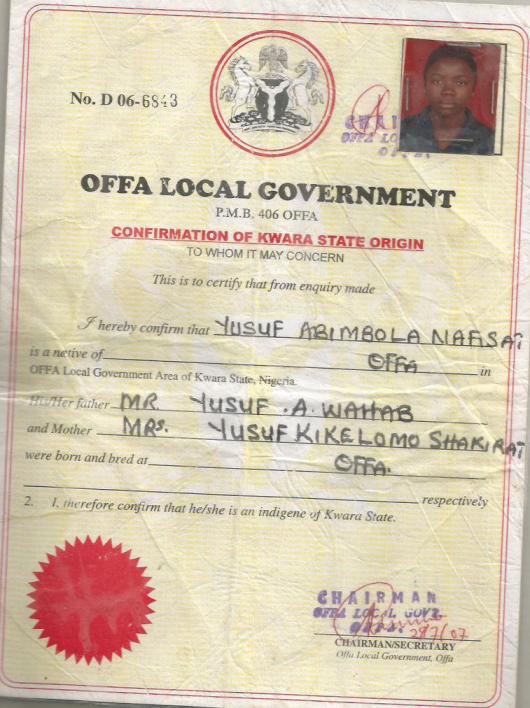 No. D 06-6843
CHAI
OFFA LO
OFFA LOCAL GOVERNMENT
P.M.B. 406 OFFA
CONFIRMATION OF KWARA STATE ORIGIN
TO WHOM IT MAY CONCERN
This is to certify that from enquiry made
I hereby confirm that YUSUF ABIMBOLA NAFISAT
is a netive of OFFA in
OFFA Local Government Area of Kwara State, Nigeria.
His/Her father MR. YUSUF .A. WAHAB
and Mother MRS. YUSUF KIKELOMO SHAKIRAT
were born and bred at OFFA.
respectively
2. I, therefore confirm that he/she is an indigene of Kwara State.
CHAIRMAN
OFFA LOCAL GOVT.
OFFA.
CHAIRMAN/SECRETARY
Offa Local Government, Offa